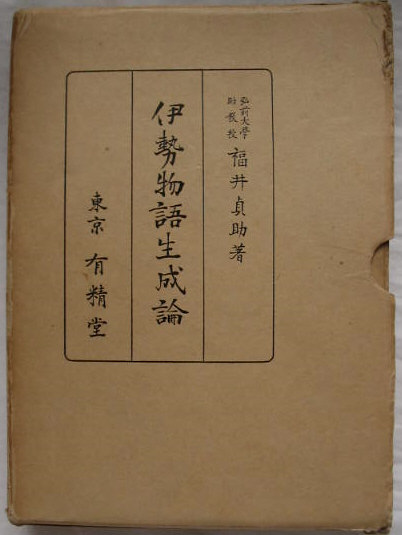 弘前大學
助教授
福井貞助著
伊勢物語生成論
東京 有精堂